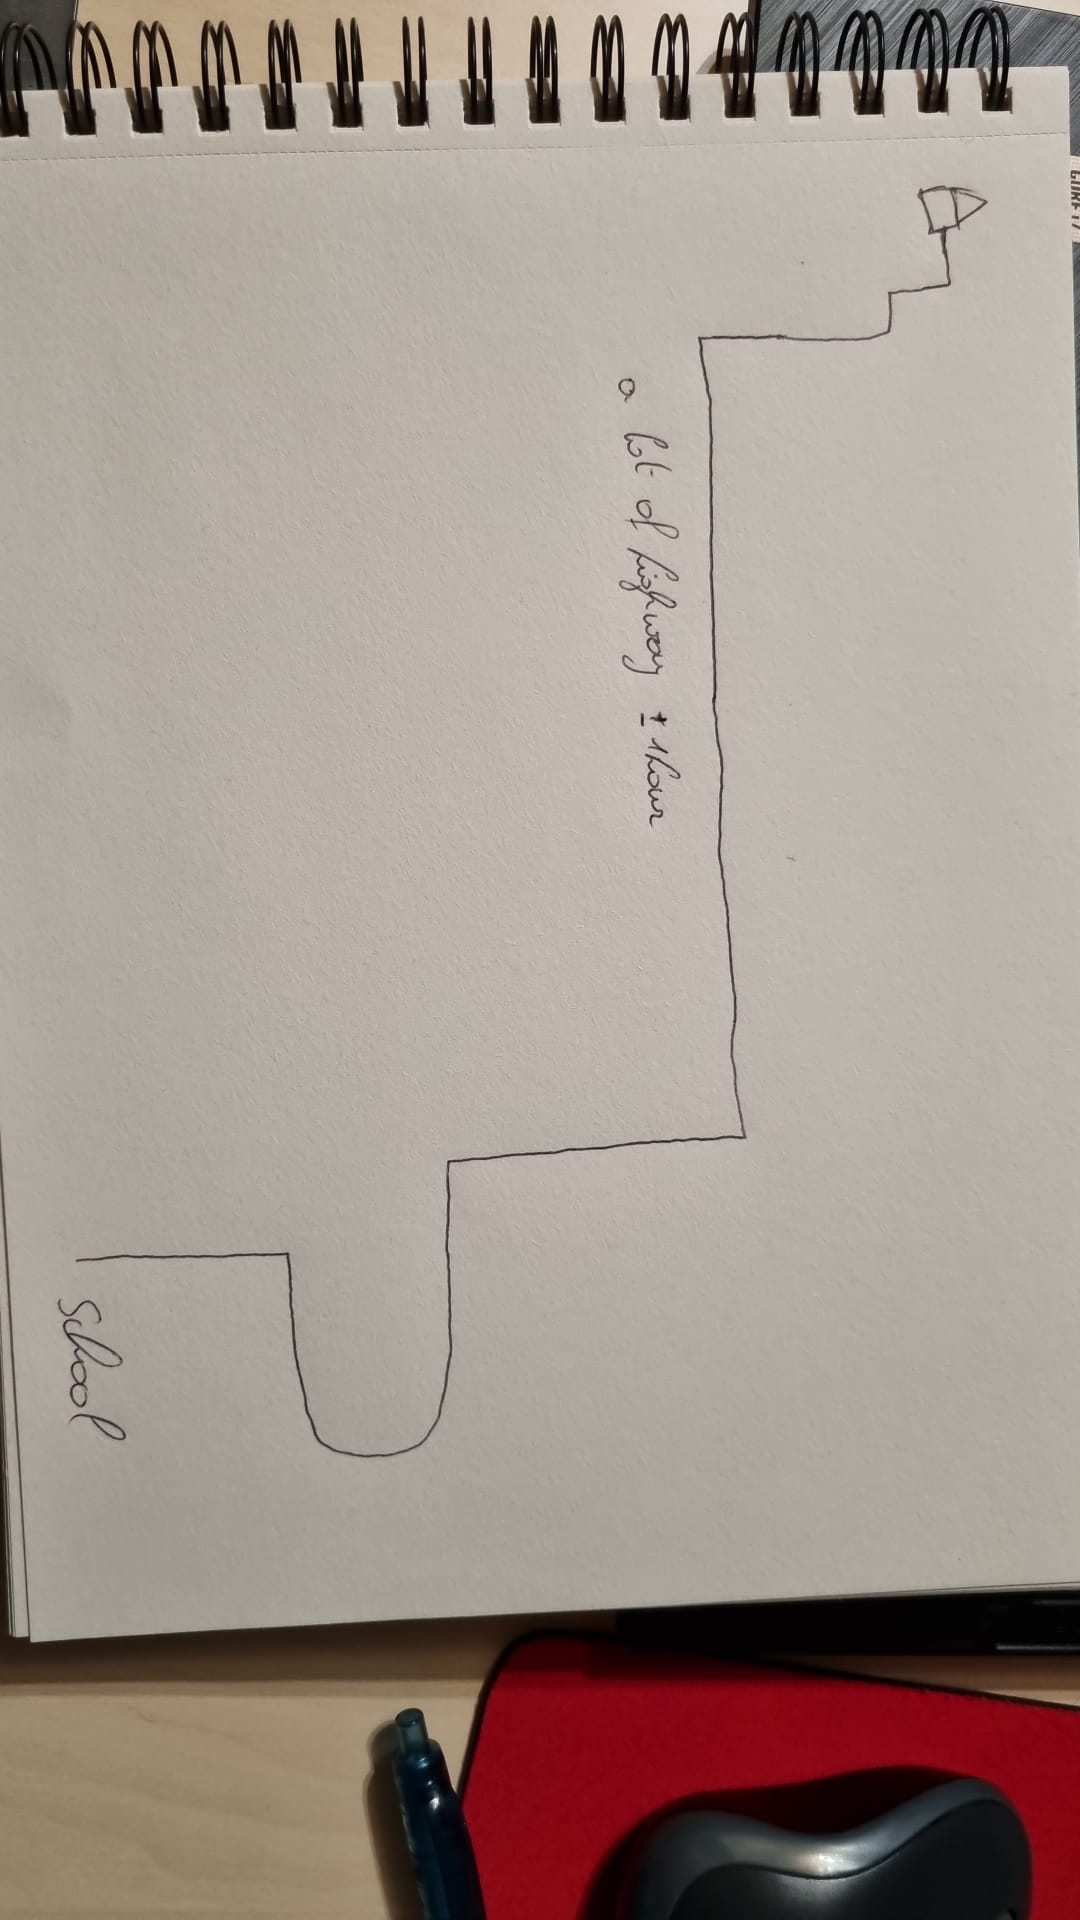 a lot of highway ± 1hour
school